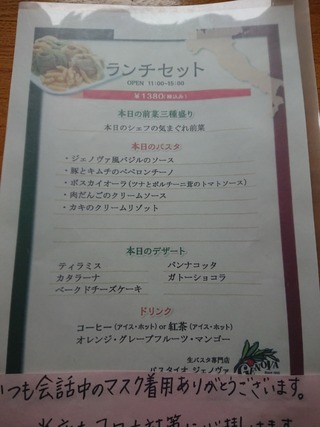 ランチセット
OPEN 11:00-15:00
￥1380(税込み)
本日の前菜三種盛り
本日のシェフの気まぐれ前菜
本日のパスタ
・ジェノヴァ風バジルのソース
・豚とキムチのペペロンチーノ
・ボスカイオーラ(ツナとポルチーニ茸のトマトソース)
・肉だんごのクリームソース
・カキのクリームリゾット
本日のデザート
ティラミス パンナコッタ
カタラーナ ガトーショコラ
ベークドチーズケーキ
ドリンク
コーヒー(アイス・ホット) or 紅茶(アイス・ホット)
オレンジ・グレープフルーツ・マンゴー
生パスタ専門店
パスタイオ ジェノヴァ
いつも会話中のマスク着用ありがとうございます。